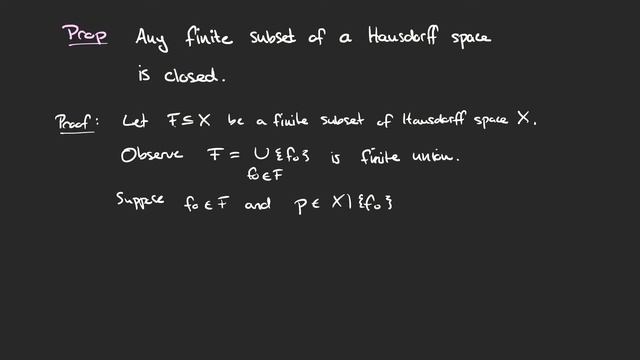 Prop Any finite subset of a Hausdorff space
is closed.
Proof: Let F ⊆ X be a finite subset of Hausdorff space X.
Observe F = ∪ {f₀} is finite union.
f₀ ∈ F
Suppose f₀ ∈ F and p ∈ X \ {f₀}